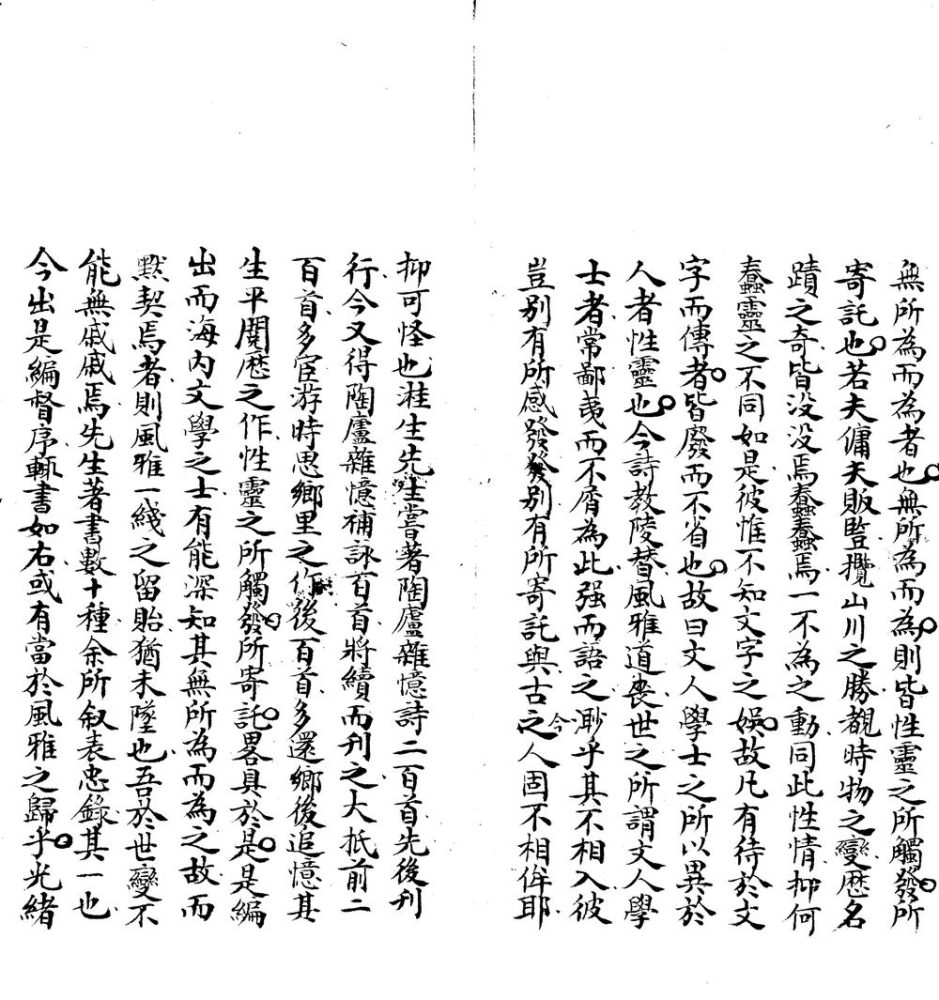 無所為而為者也無所為而為則皆性靈之所觸發所
寄託也若夫傭夫販豎攬山川之勝覩時物之變歷名
蹟之奇皆没没焉蠢蠢焉一不為之動同此性情抑何
蠢靈之不同如是彼惟不知文字之娛故凡有待於文
字而傳者皆廢而不省也故曰文人學士之所以異於
人者性靈也今詩教陵替風雅道喪世之所謂文人學
士者常鄙夷而不屑為此强而語之渺乎其不相入彼
豈別有所感發發別有所寄託與古之今人固不相侔耶
抑可怪也漄生先生嘗著陶廬雜憶詩二百首先後刊
行今又得陶廬雜憶補詠百首將續而刊之大抵前二
百首多宦游時思鄉里之作後百首多還鄉後追憶其
生平閱歷之作性靈之所觸發所寄託畧具於是是編
出而海内文學之士有能深知其無所為而為之故而
默契焉者則風雅一綫之留貽猶未墜也吾於世變不
能無戚戚焉先生著書數十種余所叙表忠錄其一也
今出是編督序輒書如右或有當於風雅之歸乎光緒